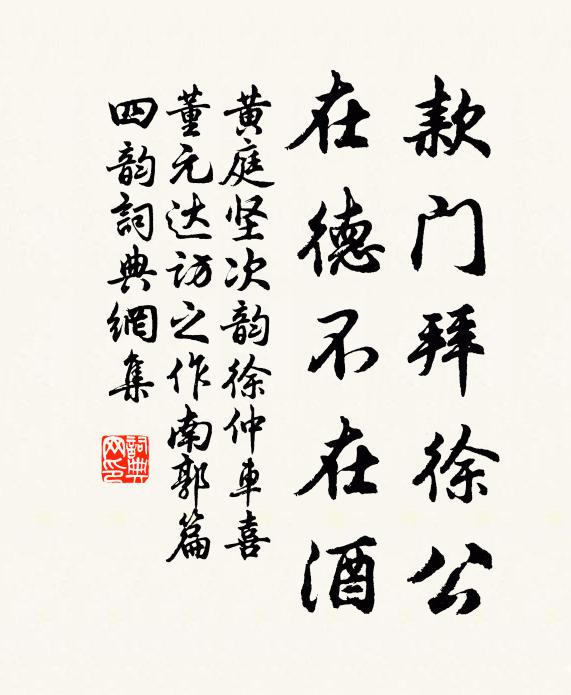 款门拜徐公
在德不在酒
黄庭坚次韵徐仲車喜
董元达访之作南郭篇
四韵詞典網集
詞典网印